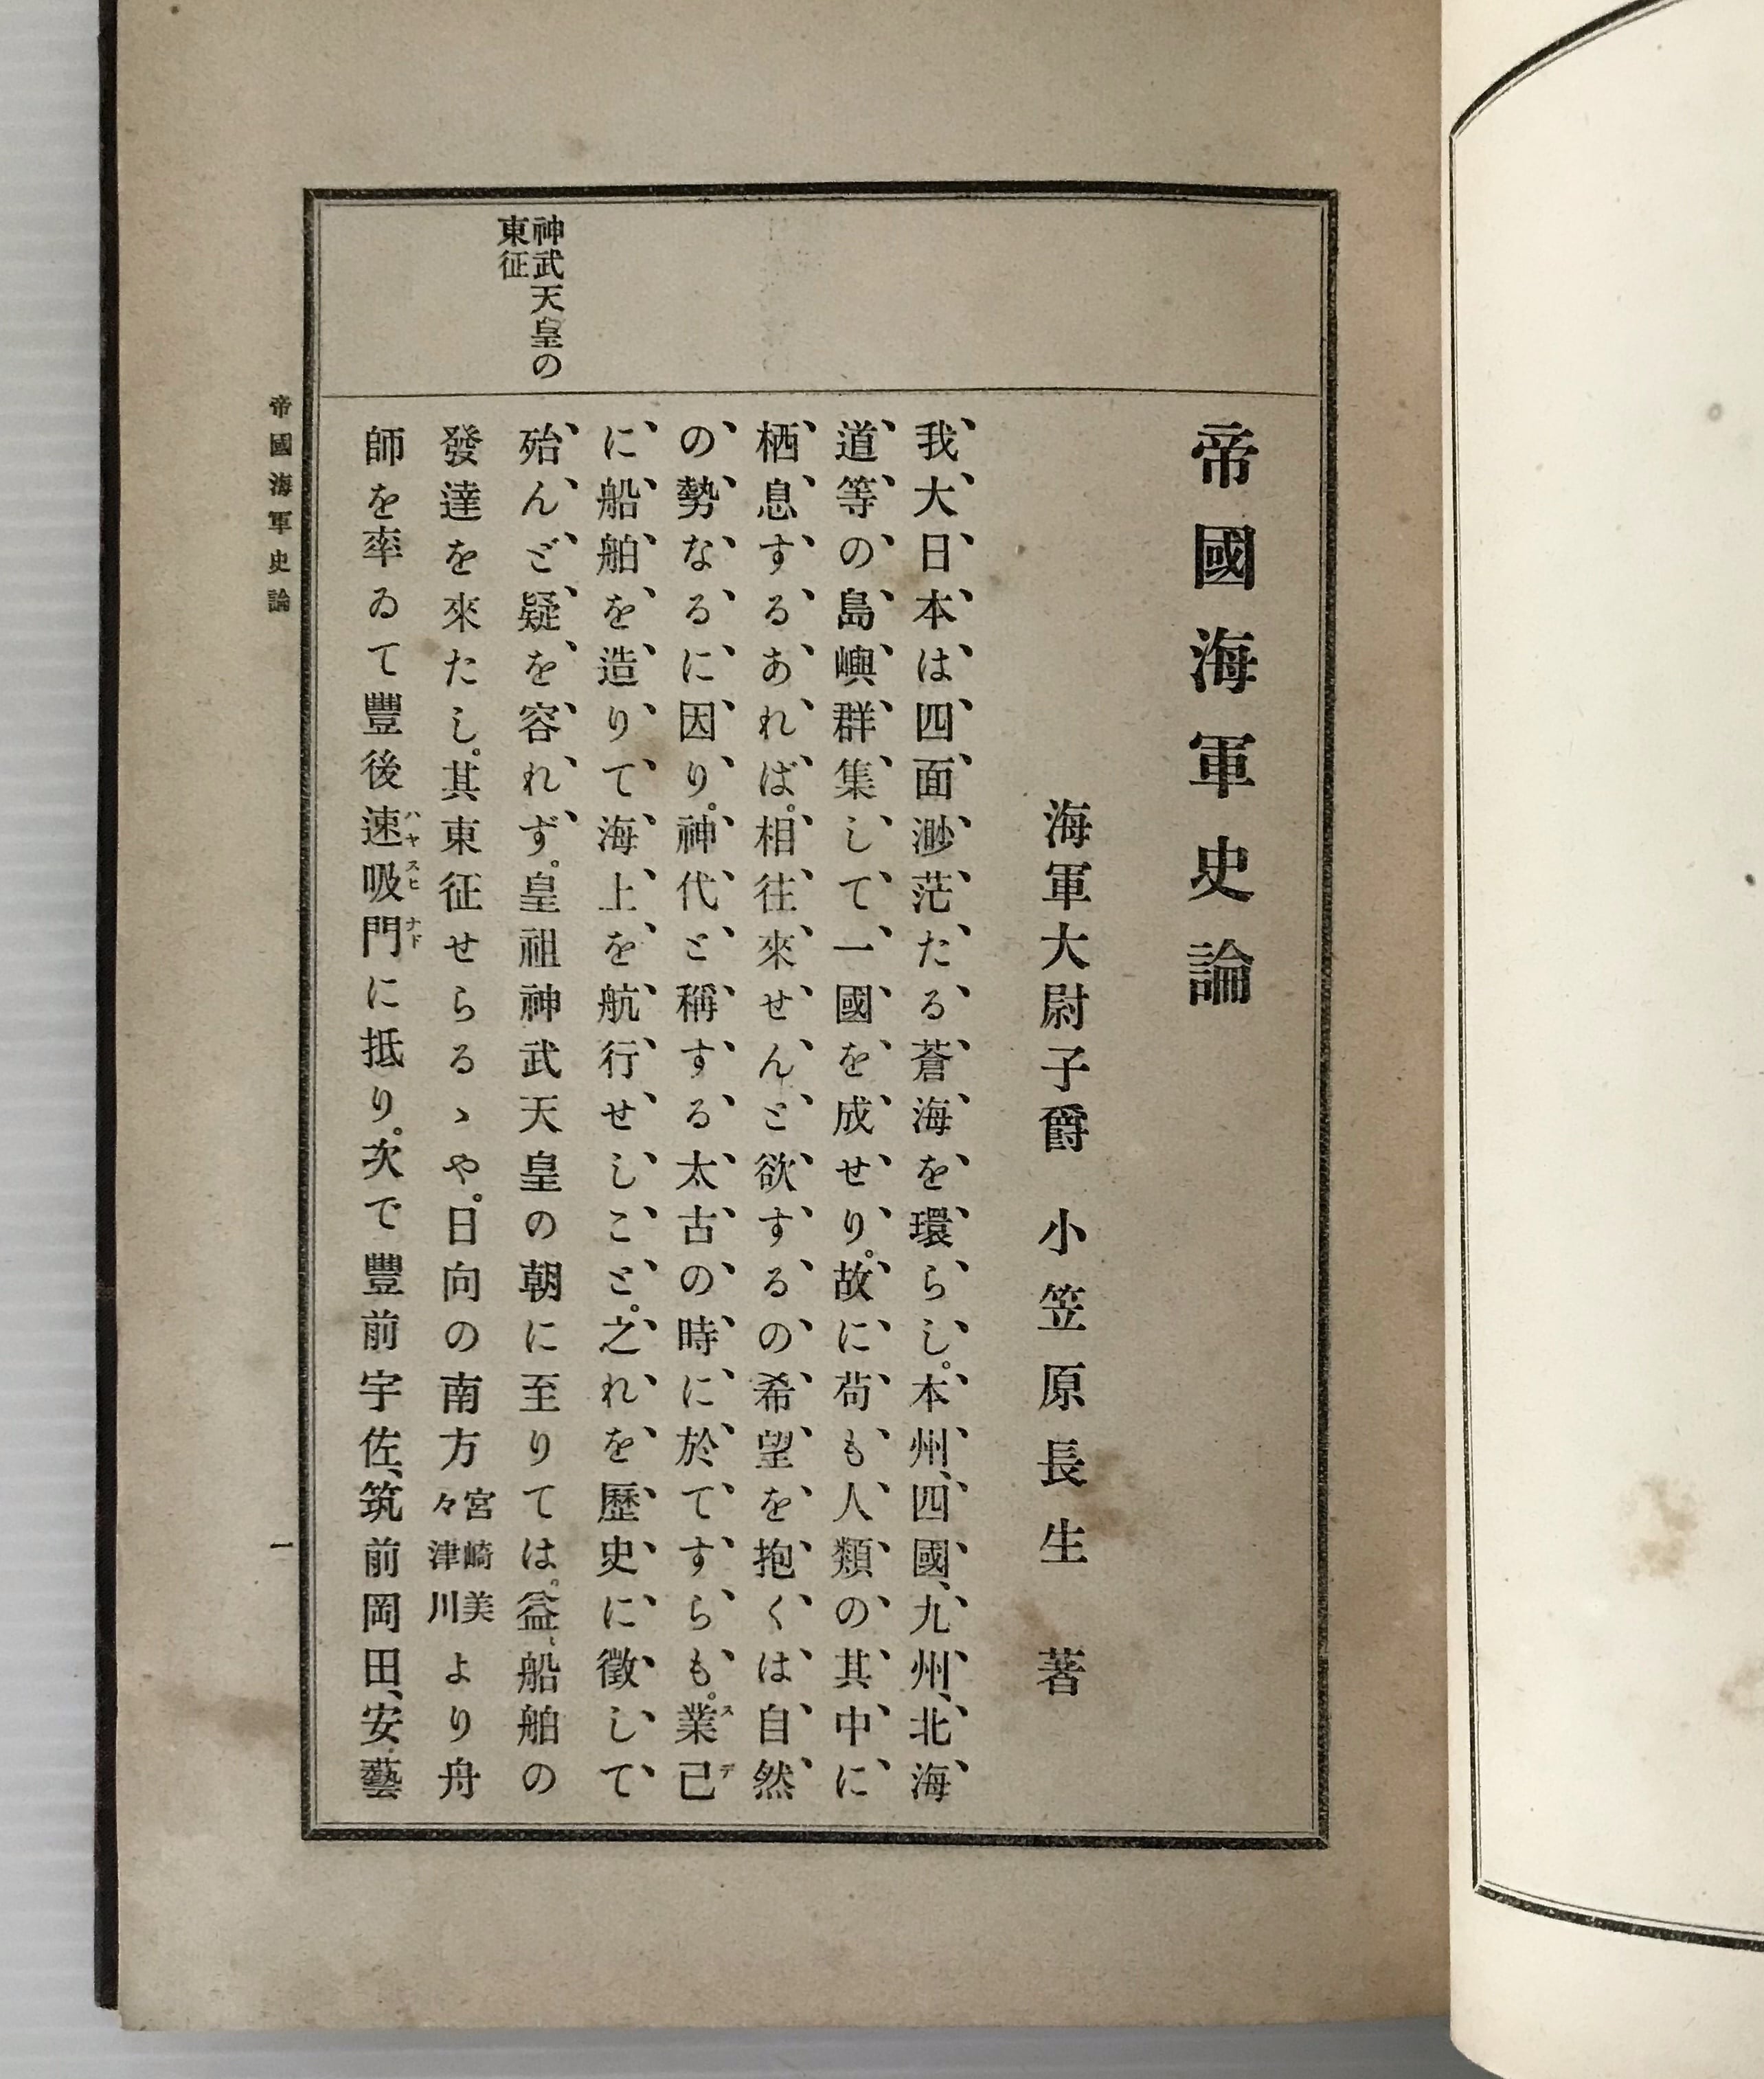 帝國海軍史論
海軍大尉子爵 小笠原長生 著
我大日本は四面渺茫たる蒼海を環らし。本州、四國、九州、北海
道等の島嶼群集して一國を成せり。故に苟も人類の其中に
栖息するあれば。相往來せんと欲するの希望を抱くは自然
の勢なるに因り。神代と稱する太古の時に於てすらも。業已スデ
に船舶を造りて海上を航行せしこと。之れを歷史に徵して
殆んど疑を容れず。皇祖神武天皇の朝に至りては。益〻船舶の
神武天皇の
東征
發達を來たし。其東征せらるゝや。日向の南方宮崎美々津川より舟
師を率ゐて豐後速吸門ハヤスヒナドに抵り。次で豐前宇佐、筑前岡田、安藝
帝國海軍史論
一